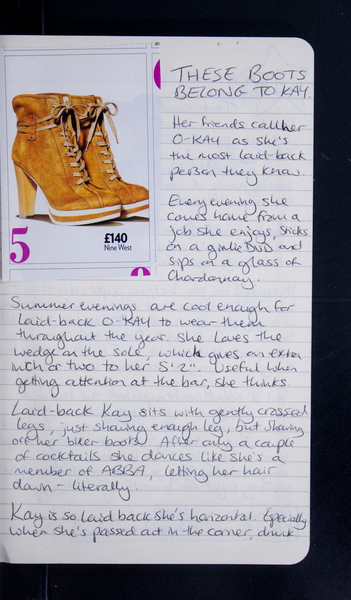 THESE BOOTS
BELONG TO KAY.
Her friends call her
O-KAY as she's
the most laid-back
person they know.
Every evening she
comes home from a
job she enjoys, sticks
on a girlie DVD and
sips on a glass of
Chardonnay.
5
£140
Nine West
Summer evenings are cool enough for
laid-back O-KAY to wear them
throughout the year. She loves the
wedge on the sole, which gives an extra
inch or two to her 5'2". Useful when
getting attention at the bar, she thinks.
Laid-back Kay sits with gently crossed
legs, just showing enough leg, but showing
off her biker boots. After only a couple
of cocktails she dances like she's a
member of ABBA, letting her hair
down - literally.
Kay is so laid back she's horizontal. Especially
when she's passed out in the corner, drunk.